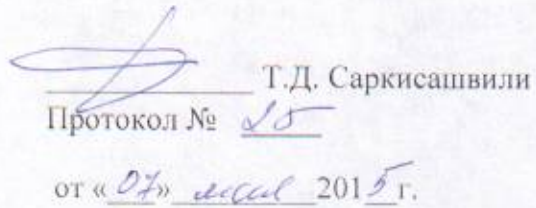 Т.Д. Саркисашвили
Протокол № 25
от «07» мая 2015 г.